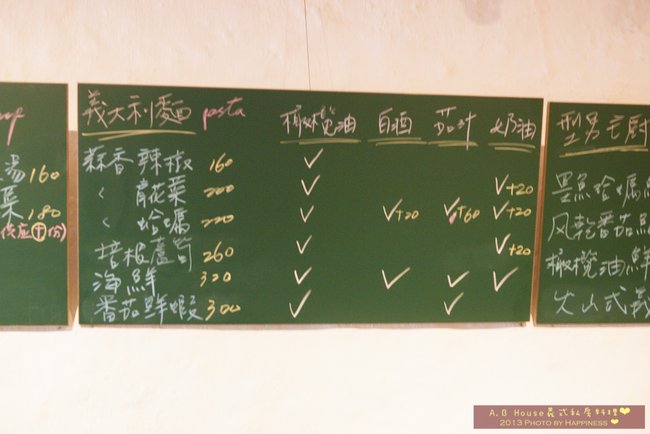 湯 160
菜 180
供應
義大利麵 pasta 橄欖油 白酒 茄汁 奶油
蒜香辣椒 160 ✓
〃 青花菜 200 ✓ ✓+20
〃 蛤蠣 220 ✓ ✓+20 ✓+60 ✓+20
培根蘆筍 260 ✓ ✓+20
海鮮 320 ✓ ✓ ✓ ✓
番茄鮮蝦 300 ✓ ✓
型男主廚
墨魚蛤蠣
風乾番茄
橄欖油鮮
火山式義
A.B House義式私房料理
2013 PHOTO BY HAPPINESS